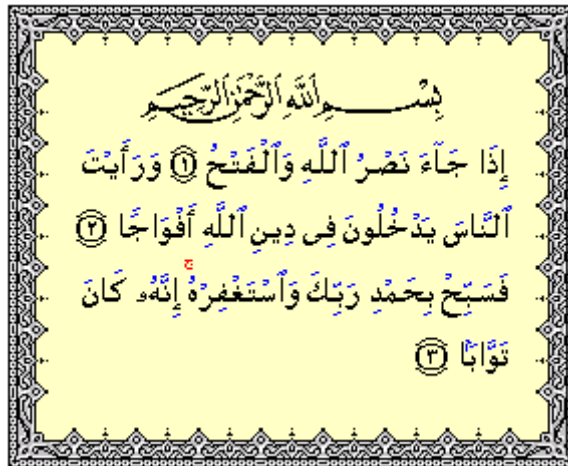 بِسْمِ اللَّهِ الرَّحْمَٰنِ الرَّحِيمِ
إِذَا جَآءَ نَصْرُ ٱللَّهِ وَٱلْفَتْحُ ١ وَرَأَيْتَ
ٱلنَّاسَ يَدْخُلُونَ فِى دِينِ ٱللَّهِ أَفْوَاجًا ٢
فَسَبِّحْ بِحَمْدِ رَبِّكَ وَٱسْتَغْفِرْهُ ۚ إِنَّهُۥ كَانَ
تَوَّابًۢا ٣